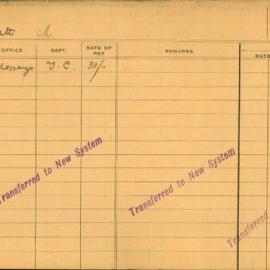 OFFICE DEPT. RATE OF PAY REMARKS DATE
T.C. 30/-
Transferred to New System
Transferred to New System
Transferred to New System